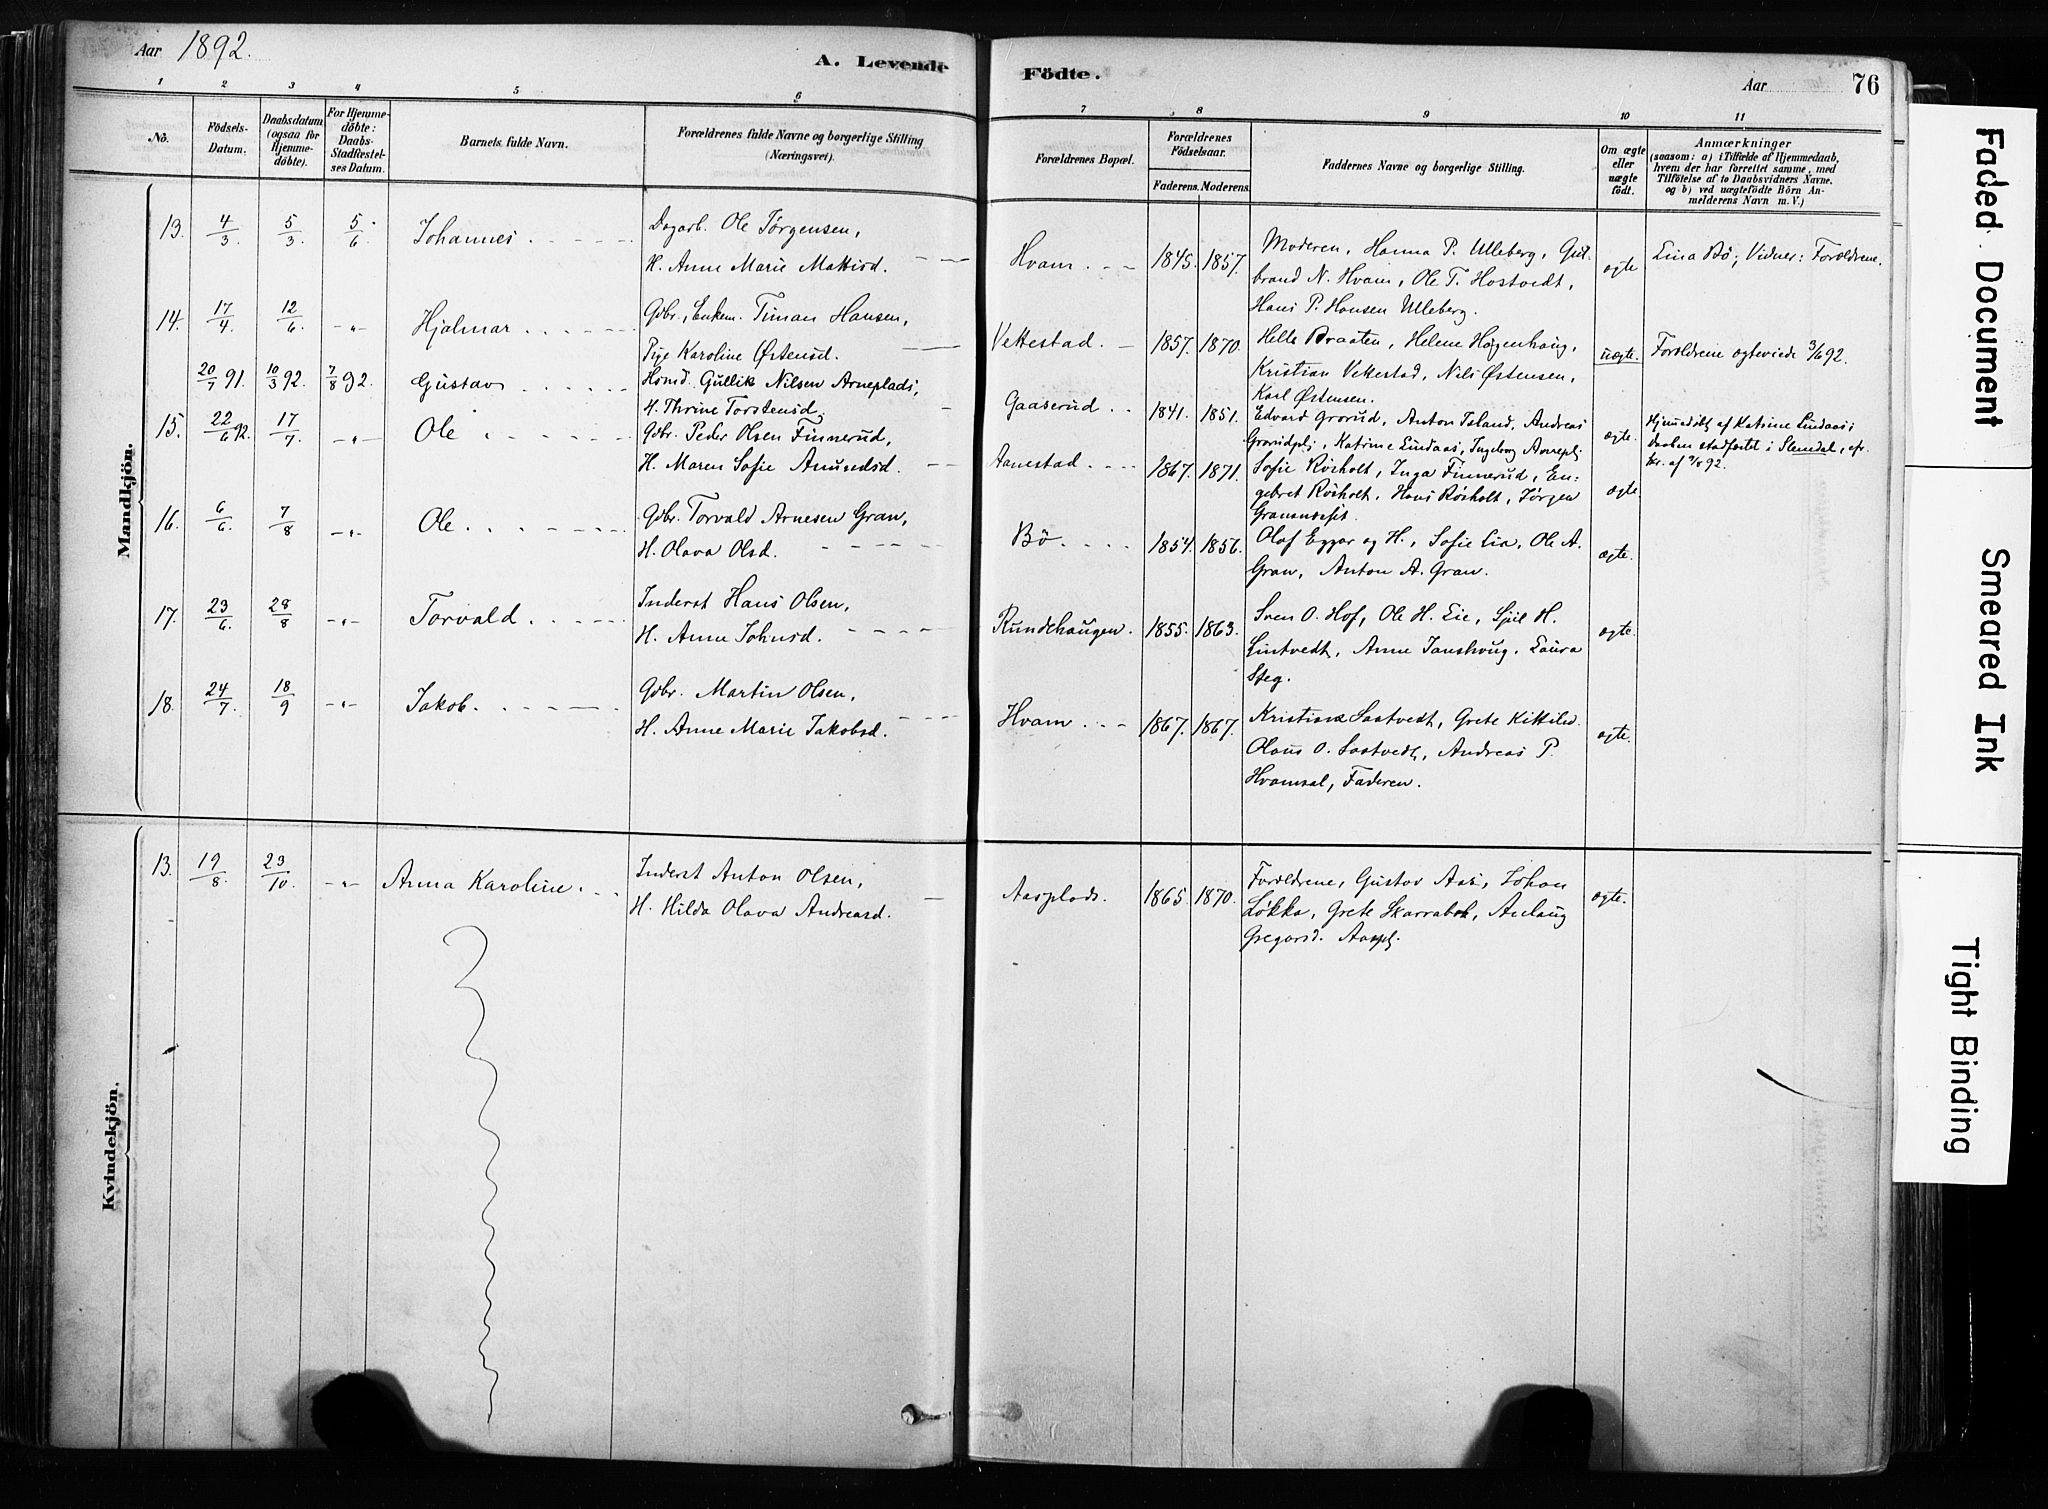 Aar 1892. A. Levende Födte. Aar 76
1 2 3 4 5 6 7 8 9 10 11
No. Födsels-Datum. Daabsdatum (ogsaa for Hjemme-döbte). For Hjemme-döbte: Daabs-Stadfæstel-ses Datum. Barnets fulde Navn. Forældrenes fulde Navne og borgerlige Stilling (Næringsvei). Forældrenes Bopæl. Forældrenes Födselsaar. Faderens. Moderens. Faddernes Navne og borgerlige Stilling. Om ægte eller uægte födt. Anmærkninger
(saasom: a) i Tilfælde af Hjemmedaab,
hvem der har forrettet samme, med
Tilföielse af to Daabsvidners Navne,
og b) ved uægtefödte Börn An-
melderens Navn m. V.)
Mandkjön.
13. 4/3. 5/3. 5/6. Johannes Dagarb. Ole Jørgensen,
H. Anne Marie Mattisd.
Hvam 1845. 1857. Moderen, Hanna P. Ulleberg, Gul-
brand N. Hvam, Ole T. Hostvedt,
Hans P. Hansen Ulleberg.
ægte Lina Bö; Vidner: Forældrene.
14. 17/4. 12/6. -"- Hjalmar Gdbr., Enkem. Timan Hansen,
Pige Karoline Østensd.
Vettestad. 1857. 1870. Helle Braaten, Helene Høgenhaug,
Kristian Vettestad, Nils Østensen,
Karl Østensen.
uægte. Forældrene ægteviede 3/6 92.
20/7 91. 10/3 92. 7/8 92. Gustav Husmd. Gullik Nilsen Arneplads,
H. Thrine Torstensd.
Gaaserud 1841. 1851. Edvard Grorud, Anton Island, Andreas
Grorudplj, Katrine Lindaas, Ingeborg Arnepl.
ægte. Hjemmedöbt af Katrine Lindaas;
Daaben stadfæstet i Slemdal, efter
af 9/8 92.
15. 22/6 92. 17/7. -"- Ole Gdbr. Peder Olsen Finnerud,
H. Maren Sofie Amundsd.
Aanestad 1867. 1871. Sofie Rösholt, Inga Finnerud, En-
gebret Rösholt, Hans Rösholt, Jörgen
ægte.
16. 6/6. 7/8 -"- Ole Gdbr. Torvald Arnesen Gran,
H. Olava Olsd.
Bö 1854. 1856. Olaf Eggar og H., Sofie Lia, Ole A.
Gran, Anton A. Gran.
ægte.
17. 23/6. 28/8 -"- Torvald Inderst Hans Olsen,
H. Anne Johnsd.
Rundehaugen. 1855. 1863. Sven O. Hof, Ole H. Lie, H.
Lintvedt, Anne Janshaug, Laura
Steg.
ægte.
18. 24/7. 18/9 -"- Jakob. Gdbr. Martin Olsen,
H. Anne Marie Jakobsd.
Hvam 1867. 1867. Kristiane Saatvedt, Grete Kittilsd.
Olaus O. Saatvedt, Andreas P.
Hvamsal, Faderen.
ægte.
Kvindekjön.
13. 19/8. 23/10. -"- Anna Karoline. Inderst Anton Olsen,
H. Hilda Olava Andreasd.
Aasplads. 1865. 1870. Forældrene, Gustav Aas, Johan
Løkka, Grete Skarrabøk, Anlaug
Gregarsd. Aaspl.
ægte.
Faded Document
Smeared Ink
Tight Binding